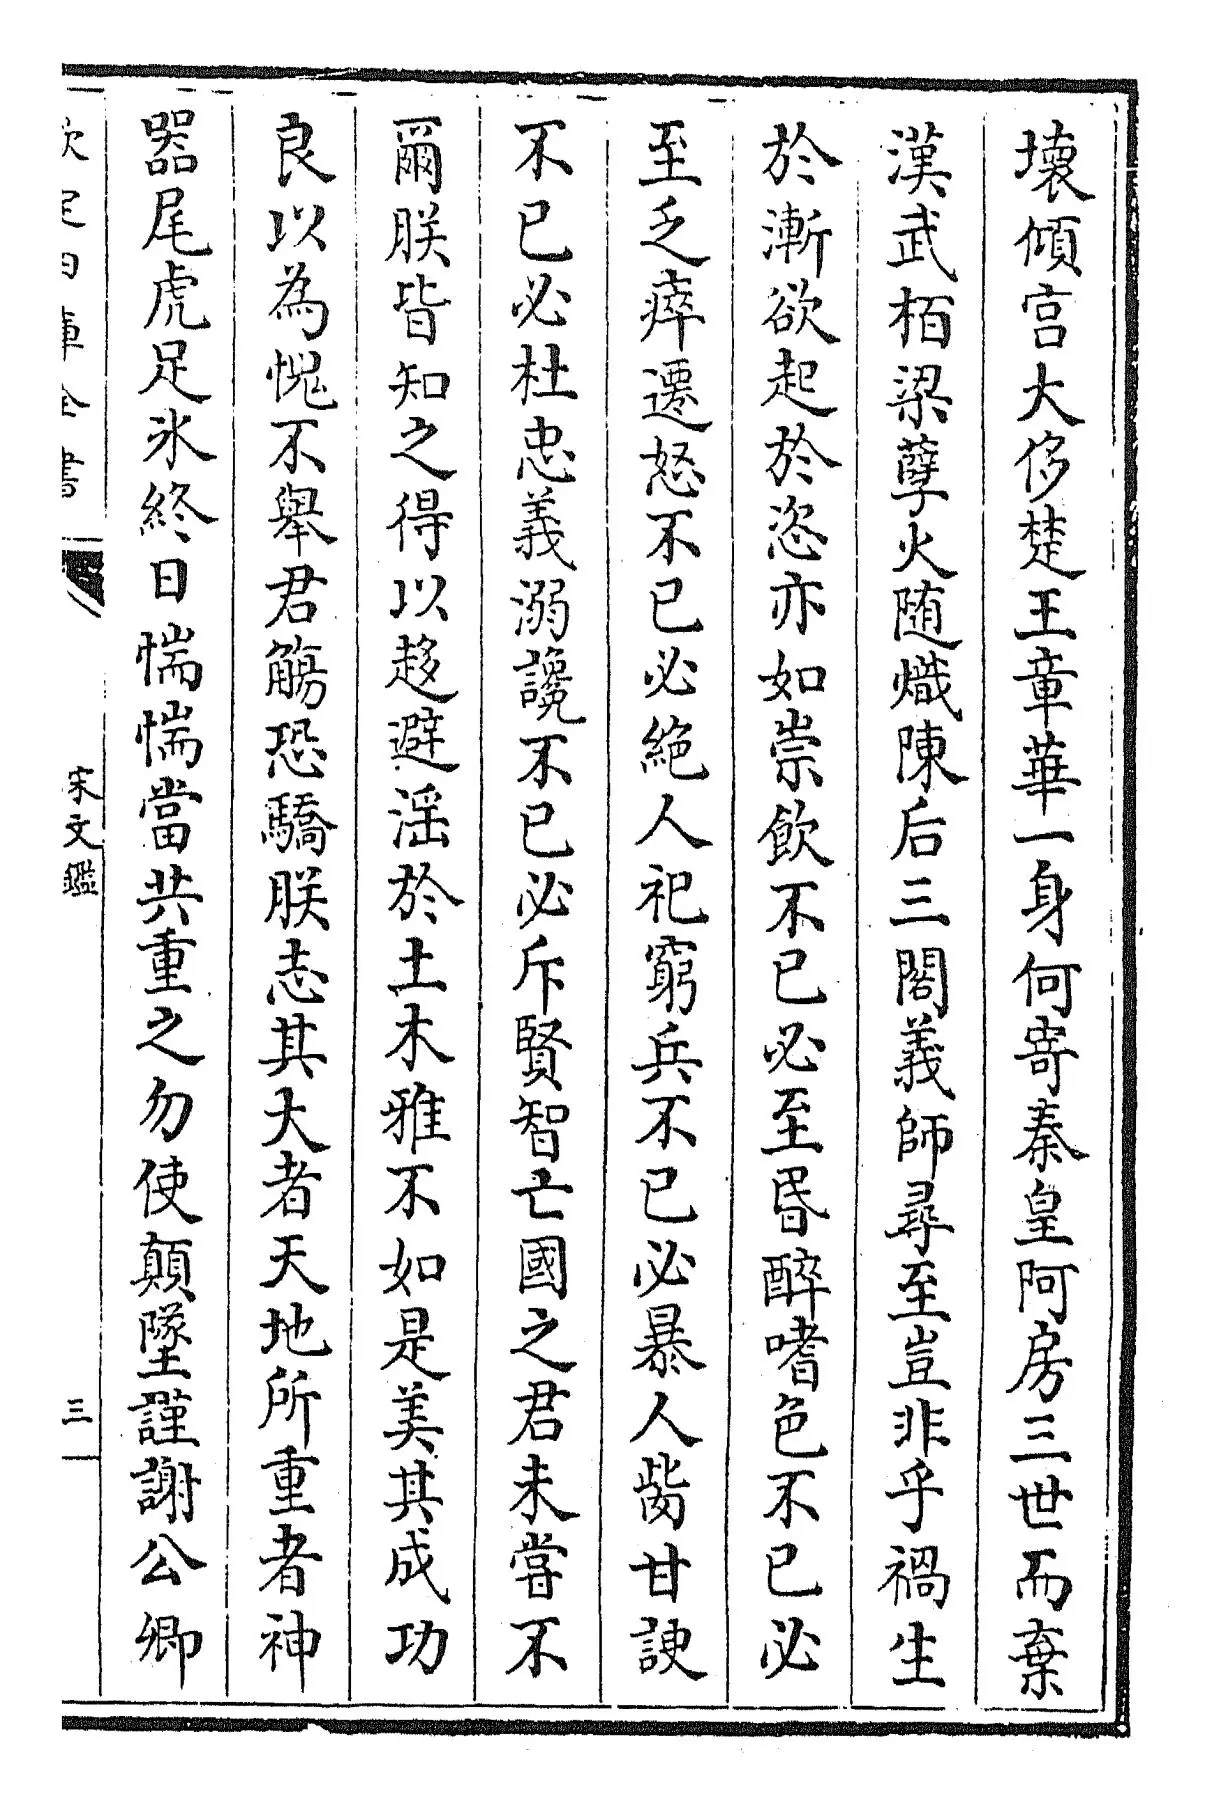 壊傾宫大侈楚王章華一身何寄秦皇阿房三世而棄
漢武栢梁孽火随熾陳后三閣義師尋至豈非乎禍生
於漸欲起於恣亦如崇飲不已必至昬醉嗜色不已必
至乏瘁遷怒不已必絶人祀窮兵不已必暴人胔甘諛
不已必杜忠義溺讒不已必斥賢智亡國之君未嘗不
爾朕皆知之得以趍避滛於土木雅不如是美其成功
良以為愧不舉君觴恐驕朕志其大者天地所重者神
器尾虎足氷終日惴惴當共重之勿使顛墜謹謝公卿
欽定四庫全書
宋文鑑
三